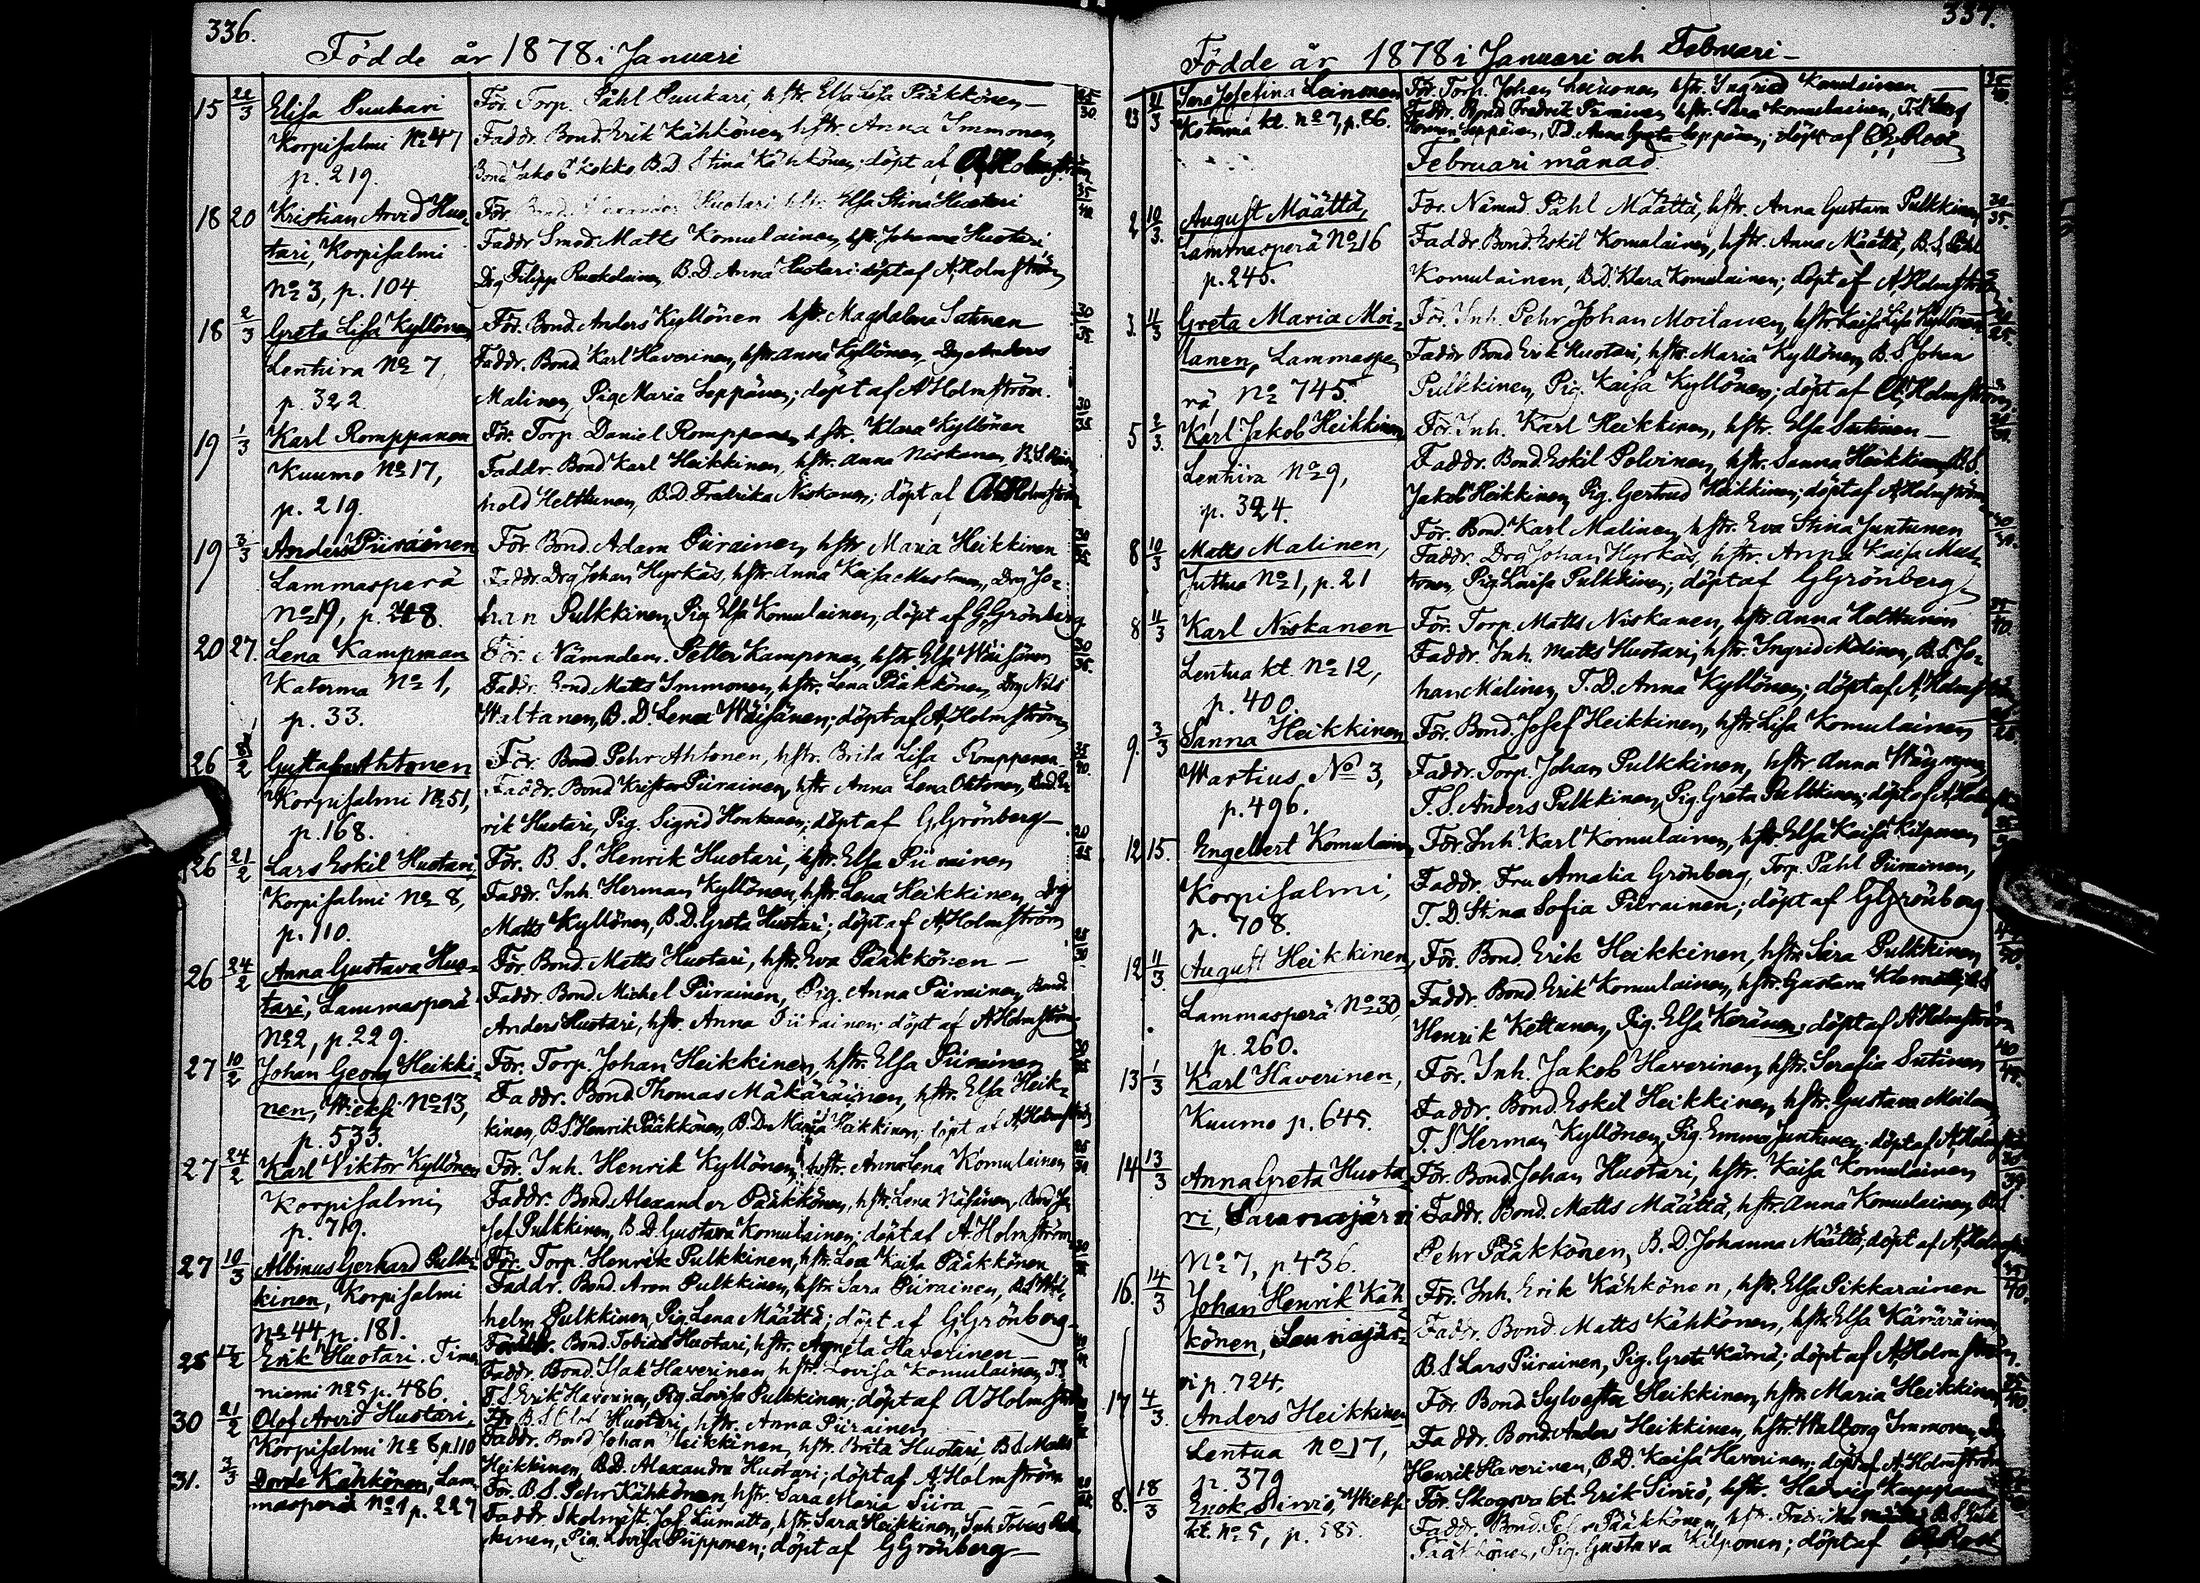 336.
Födde år 1878 i Januari
15 22/3 Elisa Puukari För. Torp. Påhl Puukari, hstr. Elsa Lisa Pääkkönen— 25/30.
Korpisalmi No 47 Faddr. Bond. Erik Kähkönen, hstr. Anna Immonen,
p. 219. Bond Jakob Kokko, B.D. Stina Kähkönen; döpt af A. Holmström
18 20 Kristian Arvid Huo- För. Bond. Alexander Huotari hstr. Elsa Stina Huotari 35/40.
tari, Korpisalmi Faddr. Smed Matts Komulainen, hstr. Johanna Huotari
No 3, p. 104. Drg Filipp Ruokolainen, B.D. Anna Huotari: döpt af A. Holmström
18 2/3 Greta Lisa Kyllönen, För. Bond. Anders Kyllönen hstr. Magdalena Satunen 30/35.
Lentiira No 7, Faddr. Bond Karl Haverinen, hstr. Anna Kyllönen, Drg Anders
p. 322. Malinen, Pig. Maria Seppänen; döpt af A. Holmström.
19 1/3 Karl Romppanen För. Torp. Daniel Romppanen, hstr. Klara Kyllönen 30/35
Kuumo No 17, Faddr. Bond Karl Heikkinen, hstr. Anna Niskanen, B.S. Rein-
p. 219. hold Helttunen, B.D. Fredrika Niskanen; döpt af A. Holmström
19 3/3 Anders Piirainen För. Bond. Adam Piirainen, hstr Maria Heikkinen
Lammasperä Faddr. Drg Johan Hyrkäs, hstr. Anna Kaisa Mustonen, Drg Jo-
No 19, p. 248. han Pulkkinen, Pig. Elsa Komulainen, döpt af G. Grönberg
20 27. Lena Kampman För. Nämndem. Petter Kampman, hstr. Elsa Wäisänen 30/35.
Katerma No 1, Faddr. Bond Matts Immonen, hstr. Lena Pääkkönen, Drg Nils
p. 33. Waltanen, B.D. Lena Wäisänen; döpt af A. Holmström
26 /2 Gustaf Ahtonen För. Bond. Pehr Ahtonen, hstr. Brita Lisa Romppanen 35/40.
Korpisalmi No 51, Faddr. Bond Krister Piirainen, hstr Anna Lena Oktonen, Bond E-
p. 168. rik Huotari, Pig. Sigrid Honkanen; döpt af G. Grönberg—
26 21/2 Lars Eskil Huotari, För. B.S. Henrik Huotari, hstr. Elsa Piirainen 20/25
Korpisalmi No 8, Faddr. Inh. Herman Kyllönen, hstr. Lena Heikkinen, Drg
p. 110. Matts Kyllönen, B.D. Greta Huotari; döpt af A. Holmström
26 24/2 Anna Gustava Huo- För. Bond. Matts Huotari, hstr. Eva Pääkkönen — 25/30
tari, Lammasperä Faddr. Bond Michel Piirainen, Pig. Anna Piirainen, Bond
No 2, p. 229. Anders Huotari, hstr. Anna Piirainen; döpt af A. Holmström
27 10/2 Johan Georg Heikki- För. Torp. Johan Heikkinen, hstr. Elsa Piirainen
nen, Wieksi No 13, Faddr. Bond Thomas Mäkäräinen, hstr. Elsa Heik-
p. 533. kinen, B.S. Henrik Pääkkönen, B.D. Maria Heikkinen; döpt af A. Holmström
27 24/2 Karl Viktor Kyllönen För. Inh. Henrik Kyllönen, hstr. Anna Lena Komulainen
Korpisalmi, Faddr. Bond. Alexander Pääkkönen, hstr. Lena Näsänen, Bond Jo-
p. 719. sef Pulkkinen, B.D. Gustava Komulainen; döpt af A. Holmström
27 10/3 Albinus Gerhard Pulk- För. Torp. Henrik Pulkkinen, hstr. Lea Kaisa Pääkkönen
kinen, Korpisalmi Faddr. Bond. Aron Pulkkinen, hstr. Sara Piirainen, B.S. Wil-
No 44, p. 181. helm Pulkkinen, Pig. Lena Määttä; döpt af G. Grönberg—
28 17/2 Erik Huotari. Timo- Bond. Tobias Huotari, hstr. Agneta Haverinen —
niemi No 5 p. 486. Faddr. Bond. Isak Haverinen, hstr. Lovisa Komulainen,
T.S. Erik Haverinen, Pig. Lovisa Pulkkinen; döpt af A. Holmström
30 21/2 Olof Arvid Huotari, För. B.S. Olof Huotari, hstr. Anna Piirainen
Korpisalmi No 8 p. 110 Faddr. Bond Johan Heikkinen, hstr. Brita Huotari, B.S. Matts
Heikkinen, B.D. Alexandra Huotari; döpt af A. Holmström
31. 3/3 Kähkönen, Lam- För. B.S. Pehr Kähkönen, hstr. Sara Maria Siira
masperä No 1 p. 227 Faddr. Skolmäst. Jos. Liimatta, hstr. Sara Heikkinen, Inh. Tobias
kinen, Pig. Lovisa Piipponen; döpt af G. Grönberg—
337.
Födde år 1878 i Januari och Februari—
23 21/3 Lena Josefina Leinonen För. Torp. Johan Leinonen hstr. Ingrid Komulainen —
Katerma kt. No 7, p. 86. Faddr. Bond Fredrik Piirainen hstr. Sara Komulainen, T.S.
Herman Seppänen, T.D. Anna Greta Seppänen; döpt af Roos
Februari månad.
2 10/3. August Määttä, För. Nämnd. Påhl Määttä, hstr. Anna Gustava Pulkkinen 30/35.
Lammasperä No 16 Faddr. Bond. Eskil Komulainen, hstr. Anna Määttä, B.S. Påhl
p. 245. Komulainen, B.D. Klara Komulainen; döpt af A. Holmström
3. 11/3 Greta Maria Moi- För. Inh. Pehr Johan Moilanen, hstr. Kaisa Lisa Kyllönen 20/25.
lanen, Lammaspe- Faddr. Bond Erik Huotari, hstr. Maria Kyllönen, B.S. Johan
rä, No 745. Pulkkinen, Pig. Kaisa Kyllönen; döpt af A. Holmström.
5 2/3. Karl Jakob Heikkinen, För. Inh. Karl Heikkinen, hstr. Elsa Sutinen —
Lentiira No 9, Faddr. Bond. Eskil Polvinen, hstr. Sanna Heikkinen, B.S.
p. 324. Jakob Heikkinen, Pig. Gertrud Heikkinen; döpt af A. Holmström
8 10/3 Matts Malinen, För. Bond. Karl Malinen, hstr. Eva Stina Juntunen
Juttua No 1, p. 21 Faddr. Drg Johan Hyrkäs, hstr. Anna Kaisa Mus-
tonen, Pig. Kaisa Pulkkinen; döpt af G. Grönberg
8 11/3 Karl Niskanen För. Torp. Matts Niskanen, hstr. Anna Helttunen 35/40.
Lentua kt. No 12, Faddr. Inh. Matts Huotari, hstr. Ingrid Malinen, B.S. Jo-
p. 400. han Malinen, T.D. Anna Kyllönen; döpt af A. Holmström.
9. 3/3 Sanna Heikkinen För. Bond. Josef Heikkinen, hstr. Lisa Komulainen
Wartius No 3, Faddr. Torp. Johan Pulkkinen, hstr Anna Wäyrynen,
p. 496. T.S. Anders Pulkkinen, Pig. Greta Pulkkinen; döpt af A. Holmström
12 15. Engelbert Komulainen, För. Inh. Karl Komulainen, hstr. Elsa Kaisa Kilponen
Korpisalmi, Faddr. Fru Amalia Grönberg, Torp. Påhl Piirainen,
p. 708. T.D. Stina Sofia Piirainen; döpt af G. Grönberg
12 11/3 August Heikkinen, För. Bond. Erik Heikkinen, hstr. Sara Pulkkinen
Lammasperä No 30, Faddr. Bond. Erik Komulainen, hstr. Gustava Klemetti, B.S.
p. 260. Henrik Kettunen, Pig. Elsa Keränen; döpt af A. Holmström
13 1/3 Karl Haverinen, För. Inh. Jakob Haverinen, hstr. Serafia Sutinen 40/45.
Kuumo p. 645. Faddr. Bond. Eskil Heikkinen, hstr. Gustava Moilanen,
T.S. Herman Kyllönen, Pig. Emma Juntunen; döpt af A. Holmström
14 13/3 Anna Greta Huota- För. Bond. Johan Huotari, hstr. Kaisa Komulainen
ri, Saunajärvi Faddr. Bond. Matts Määttä, hstr. Anna Komulainen, B.S.
No 7, p 436. Pehr Pääkkönen, B.D. Johanna Määttä; döpt af A. Holmström
16. 14/3 Johan Henrik Käh- För. Inh. Erik Kähkönen, hstr. Elsa Pikkarainen
könen, Saunajär- Faddr. Bond. Matts Kähkönen, hstr. Elsa Kämäräinen
vi p. 724, B.S. Lars Piirainen, Pig. Greta Kärnä; döpt af A. Holmström.
17 4/3. Anders Heikkinen För. Bond Sylvester Heikkinen, hstr. Maria Heikkinen
Lentua No 17, Faddr. Bond. Anders Heikkinen, hstr. Walborg Immonen,
p. 379 Henrik Haverinen, B.D. Kaisa Haverinen; döpt af A. Holmström
8. 18/3 Enok Sirviö, Wieksi För. Skogsvakt. Erik Sirviö, hstr. Hedvig
kt. No 5, p. 585. Faddr. Bond. Pääkkönen, hstr.
Pääkkönen, Pig. Gustava Kilponen; döpt af Roos